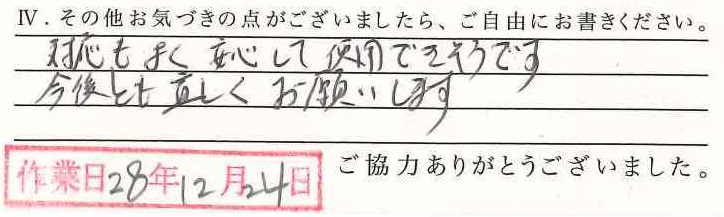 Ⅳ．その他お気づきの点がございましたら、ご自由にお書きください。
対応もよく安心して使用できそうです
今後とも宜しくお願いします
作業日28年12月24日
ご協力ありがとうございました。